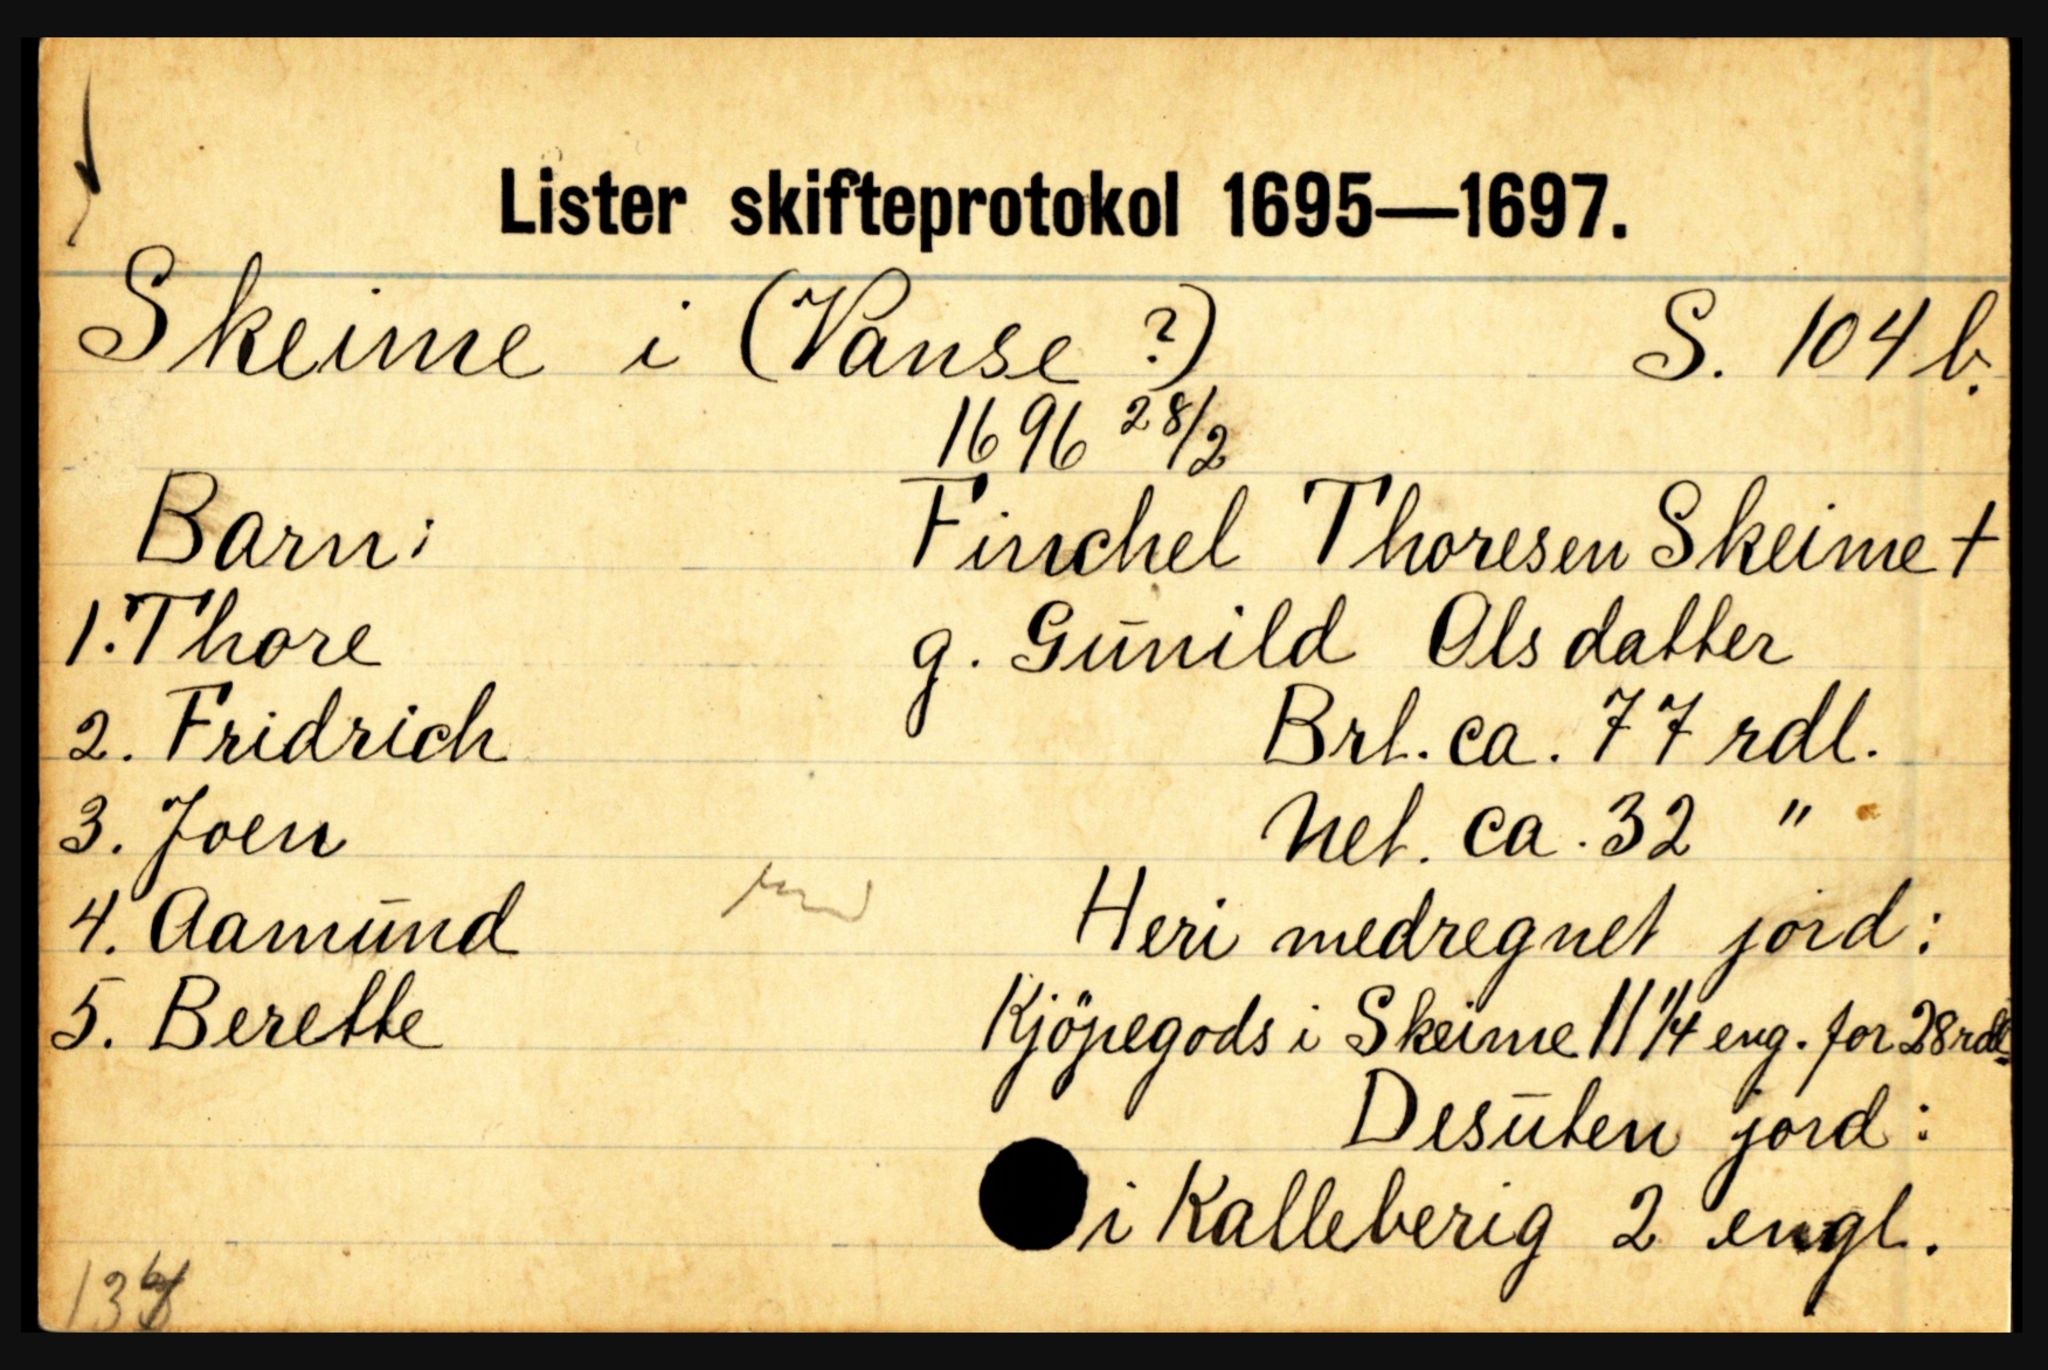 Lister skifteprotokol 1695—1697.
Skeime i (Vanse ?) S. 104 b.
1696 28/2
Barn:
1. Thore
2. Fridrich
3. Joen
4. Aamund
5. Berette
Finchel Thoresen Skeime †
g. Gunild Olsdatter
Brt. ca. 77 rdl.
Net. ca. 32 "
Heri medregnet jord:
Kjöpegods i Skeime 11 1/4 eng. for 28 rdl.
Desuten jord:
i Kalleberig 2 engl.